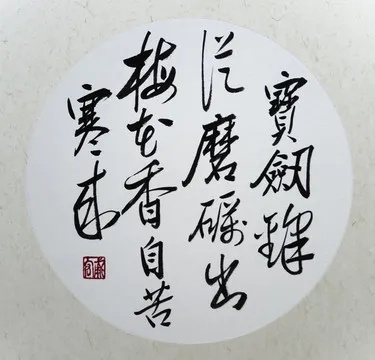 寶劒鋒
從磨礪出
梅花香自苦
寒來